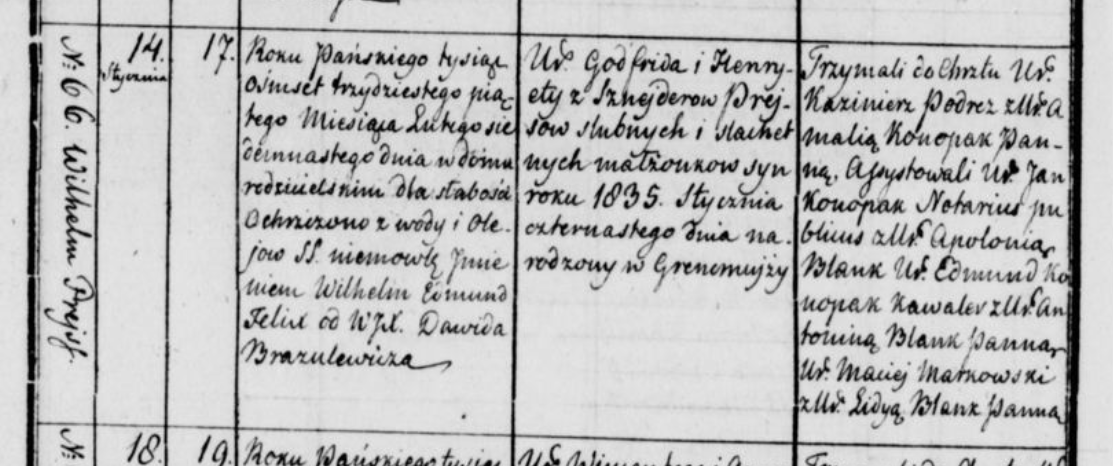 N: 66. Wilhelm Prejss.
14.
Stycznia
17.
Roku Pańskiego tysiąc
Ośmset trzydziestego pią
tego Miesiąca Lutego sie
demnastego dnia w domu
rodzicielskim dla słabości
Ochrzczono z wody i Ole-
jow SS. niemowlę Jmie
niem Wilhelm Edmund
Felix od WJX. Dawida
Brazulewicza
Ur. Godfrida i Henry-
ety z Sznejderow Prej-
sow slubnych i slachet
nych małżonkow syn
roku 1835. Stycznia
czternastego dnia na-
rodzony w Grenomujży
Trzymali do Chrztu Ur.
Kazimierz Podrez z Ur. A
malią Konopak Pan-
ną, Assystowali Ur. Jan
Konopak Notarius pu
blicus z Ur. Apolonią
Blank Ur. Edmund Ko
nopak Kawaler z Ur. An
toniną Blank Panną
Ur. Maciej Markowski
z Ur. Lidyą Blank Panną
N:
18.
19.
Roku Pańskiego tysiąc